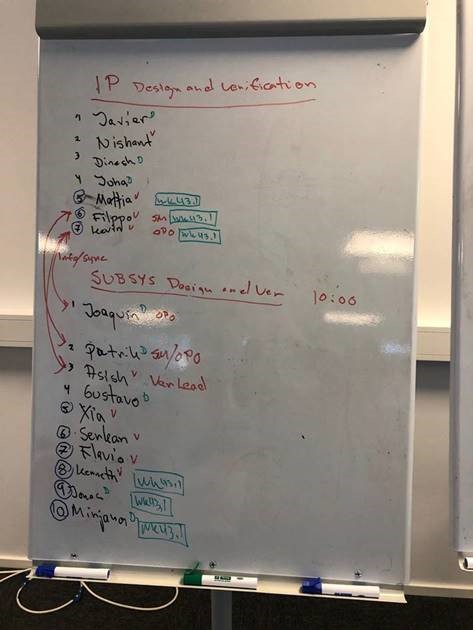 IP Design and verification
1 Javier D
2 Nishant V
3 Dinesh D
4 Joha D
5 Mattia V wk43.1
6 Filippo V SM wk43.1
7 Kevin V OPO wk43.1
Info/sync
SUBSYS Design and Ver 10:00
1 Joaquin D OPO
2 Patrik D SM/OPO
3 Asish V Ver Lead
4 Gustavo D
5 Xia V
6 Serkan V
7 Flavio V
8 Kenneth V wk43.1
9 Jonas D wk43.1
10 D wk43.1